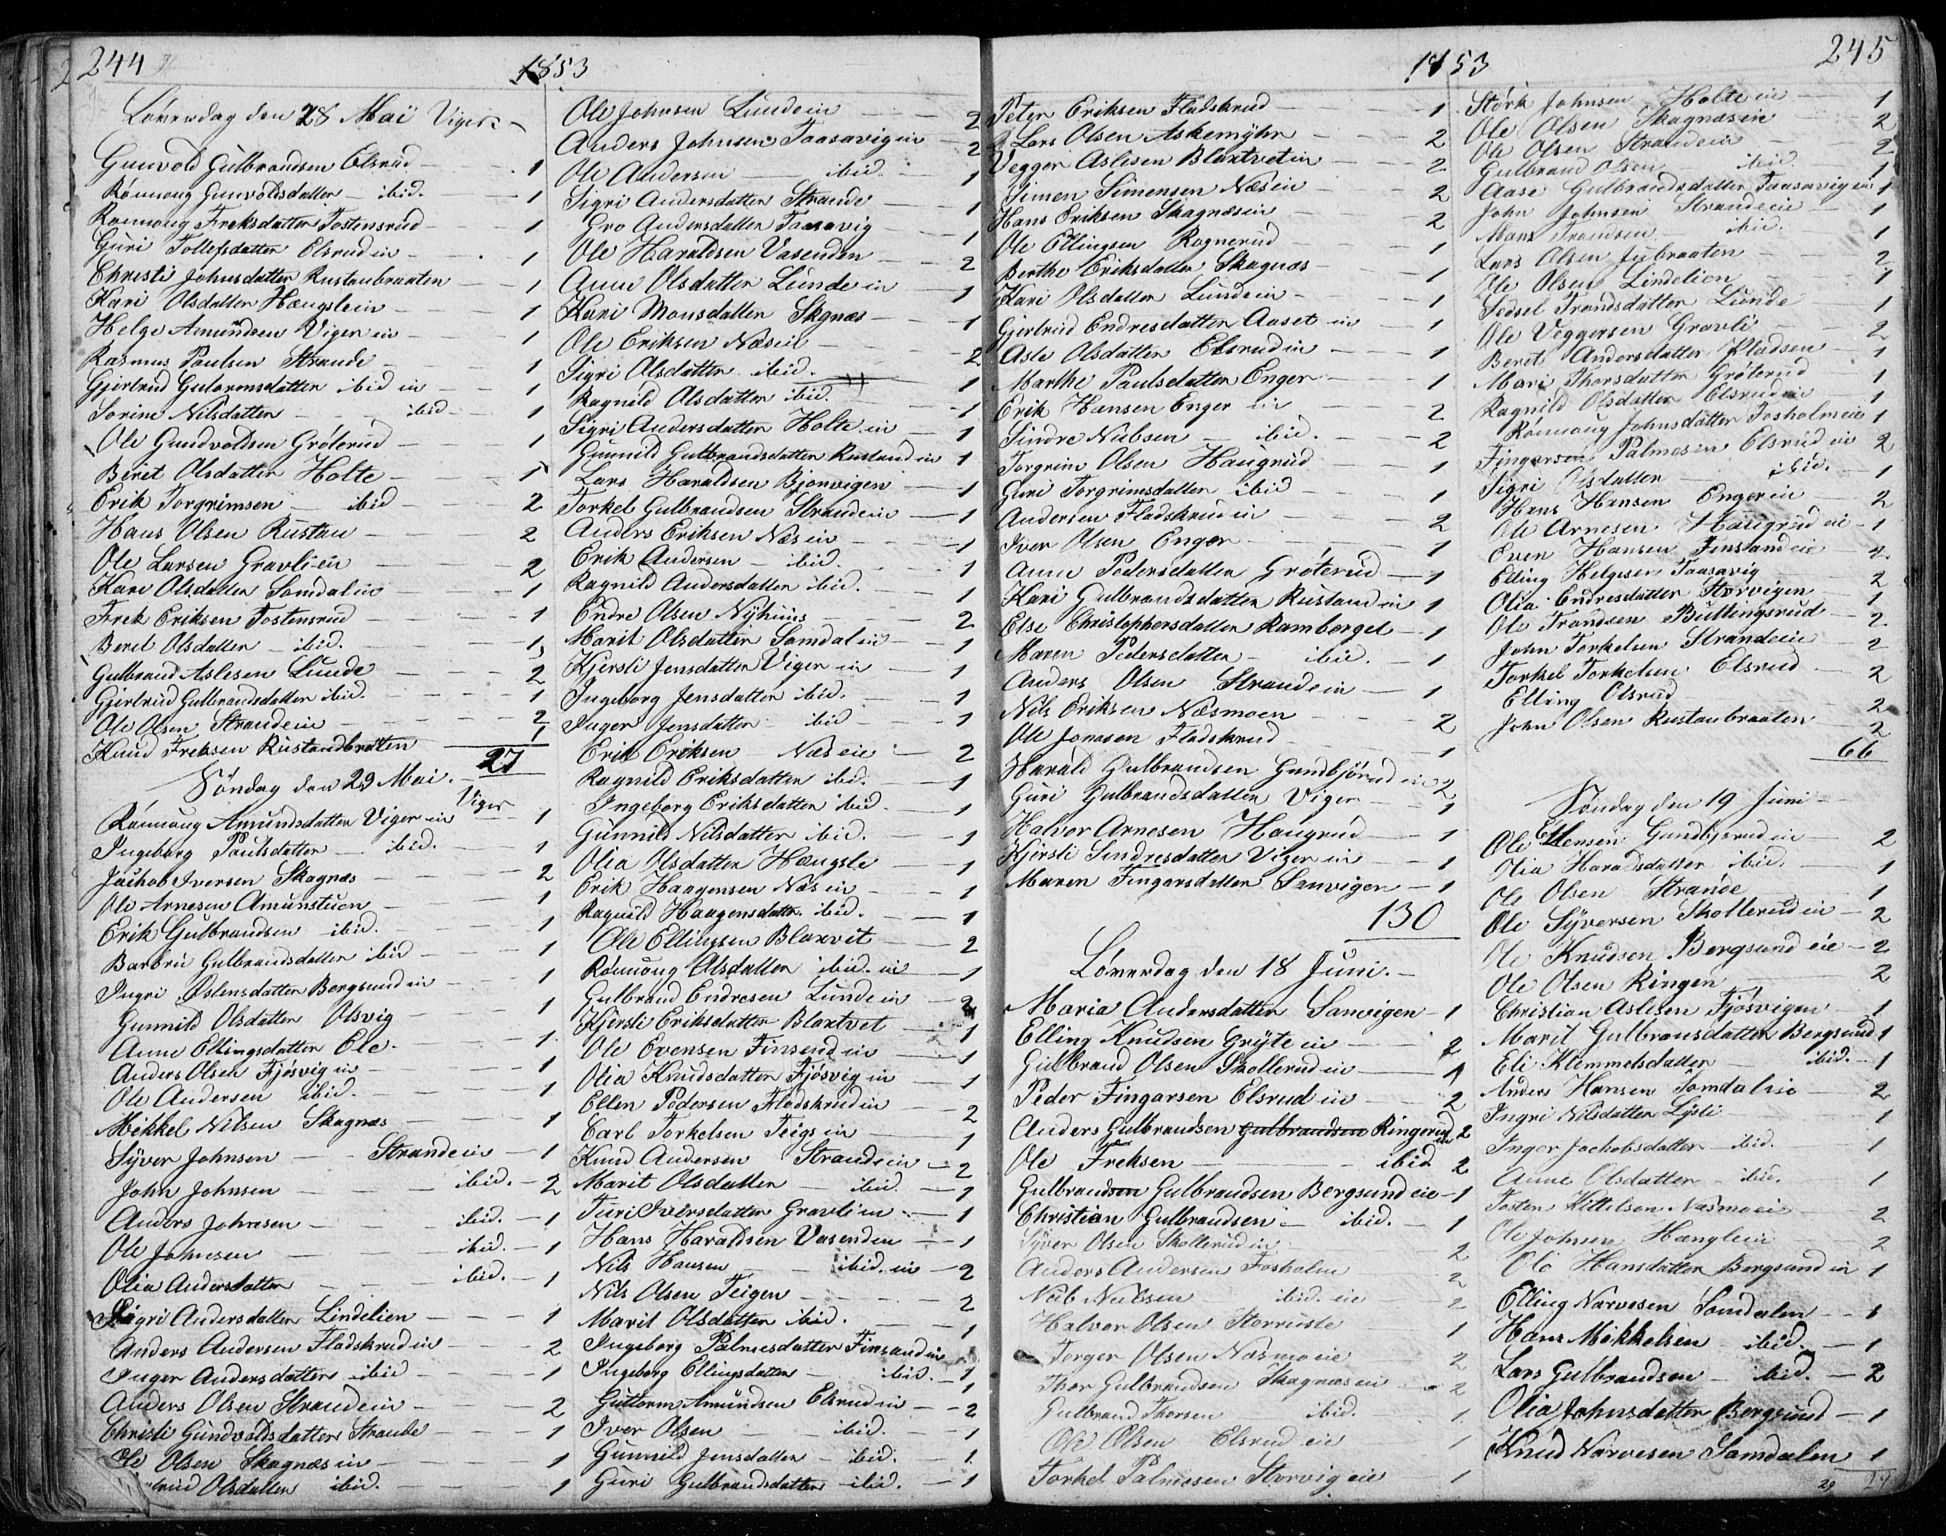 244
1853
Löverdag den 28 Mai Viger
Gunvold Gulbrandsen Elsrud 1
Rönnoug Gunvoldsdatter ibid. 1
Rönnoug Freksdatter Tostensrud 1
Guri Tollefsdatter Elsrud in 1
Christi Johnsdatter Rustanbraaten 1
Kari Olsdatter Hængslein 1
Helge Amundsen Viger ein 1
Rasmus Paulsen Strande 1
Gjertrud Gutormsdatter ibid in 1
Sorine Nilsdatter ibid 1
Ole Gundvoldsen Gröterud 1
Beret Olsdatter Holte 1
Erik Torgrimsen ibid 2
Hans Olsen Rustan 2
Ole Larsen Gravli ein 2
Kari Olsdatter Somdal in 1
Frek Eriksen Tostensrud 1
Beret Olsdatter ibid. 1
Gulbrand Aslesen Lunde 2
Gjertrud Gulbrandsdatter ibid. 1
Ole Olsen Strande in 2
Knud Freksen Rustandbratten 1
27
Söndag den 29 Mai. Viger
Rönnoug Amundsdatter Viger ein 1
Ingeborg Paulsdatter ibid. 1
Jachob Iversen Skagnæs 2
Ole Arnesen Amunstuen 1
Erik Gulbrandsen ibid. 1
Barbru Gulbrandsdatter ibid 1
Ingri Aslensdatter Bergsund in 1
Gunnild Olsdatter Olsvig 1
Anne Ellingsdatter Ele 1
Anders Olsen Fjösvig in 1
Ole Andersen ibid. 1
Mikkel Nilsen Skagnæs 1
Syver Johnsen Strandein 1
John Johnsen ibid. 2
Anders Johnesen ibid. 1
Ole Johnesen ibid. 1
Olia Andersdatter ibid. 1
Sigri Andersdatter Lindelien 1
Anders Andersen Fladskrud in 2
Inger Andersdatter ibid 1
Anders Olsen Strande in 2
Christi Gundvoldsdatter Strande 1
Ole Olsen Skagnæs in 1
Olsdatter ibid. 1
Ole Johnsen Lunde in 2
Anders Johnsen Taasavig in 2
Ole Andersen ibid. 1
Sigri Andersdatter Strande 1
Gro Andersdatter Taasavig 1
Ole Haraldsen Vasenden 2
Anne Olsdatter Lunde in 1
Kari Monsdatter Skgnæs 1
Ole Eriksen Næsein 2
Sigri Olsdatter ibid. 1
Ragnild Olsdatter ibid. 1
Sigri Andersdatter Holte in 1
Gunnild Gulbrandsdatter Rustand in 1
Lars Haraldsen Bjonvigen 1
Torkel Gulbrandsen Strande in 1
Anders Eriksen Næs in 1
Erik Andersen ibid. 1
Ragnild Andersdatter ibid. 1
Endre Olsen Nyhuus 2
Marit Olsdatter Somdal in 1
Kjersti Jensdatter Viger in 1
Ingeborg Jensdatter ibid. 1
Inger Jensdatter ibid 1
Erik Eriksen Næs eie 2
Ragnild Eriksdatter ibid. 1
Ingeborg Eriksdatter ibid. 1
Gunnild Nilsdatter ibid. 1
Olia Olsdatter Hængsle 1
Erik Haagensen Næs in 1
Ragnild Haagensdattr. ibid. 1
Ole Ellingsen Blaxvet 2
Rönnoug Olsdatter ibid. in 1
Gulbrand Endresen Lunde in 2
Kjersti Eriksdatter Blaxtvet 1
Ole Evensen Finsend in 1
Olia Knudsdatter Fjösvig in 1
Ellen Pedersen Fladskrud in 2
Carl Torkelsen Teigs in 1
Knud Andersen Strande in 2
Marit Olsdatter ibid. 1
Turi Iversdatter Gravli in 1
Hans Haraldsen Vasenden 1
Nils Hansen ibid. in 2
Nils Olsen Teigen 2
Marit Olsdatter ibid. 1
Ingeborg Palmesdatter Finsand in 1
Ingeborg Ellingsdatter ibid. 1
Guttorm Amundsen Elsrud in 2
Iver Olsen ibid. 1
Gunnild Jensdatter ibid. 1
Guri Gulbrandsdatter ibid. 1
245
1853
Peter Eriksen Fladskrud 1
Lars Olsen Askemyhr 2
Vegger Aslesen Blaxtvet in 2
Simen Simensen Næs ein 2
Hans Eriksen Skagnæs in 2
Ole Ellingsen Rognerud 1
Berthe Eriksdatter Skagnæs 1
Kari Olsdatter Lunde in 1
Gjertrud Endresdatter Aaset in 1
Asle Olsdatter Elsrud in 1
Marthe Paulsdatter Enger 1
Erik Hansen Enger in 2
Sindre Nielsen ibid. 2
Torgrim Olsen Haugrud 1
Guri Torgrimsdatter ibid 1
Andersen Fladskrud in 2
Iver Olsen Enger 1
Anne Pedersdatter Gröterud 1
Kari Gulbrandsdatter Rustand in 1
Else Christophersdatter Ramberget 1
Maren Pedersdatter ibid. 1
Anders Olsen Strande in 1
Nils Eriksen Næsmoen 2
Ole Jonasen Fladskrud 1
Harald Gulbrandsen Gundbjörud in 2
Guri Gulbrandsdatter Viger 1
Halvor Arnesen Haugrud 1
Kjersti Sindresdatter Viger in 1
Maren Fingarsdatter Sanvigen 1
130
Löverdag den 18 Juni.
Maria Andersdatter Sanvigen 1
Elling Knudsen Gryte in 2
Gulbrand Olsen Skollerud in 1
Peder Fingarsen Elsrud in 2
Anders Gulbrandsen Gulbrandsen Ringerud 2
Ole Freksen ibid 2
Gulbrandsen Gulbrandsen Bergsund eie 1
Christian Gulbrandsen ibid. 1
Syver Olsen Skollerud in 2
Anders Andersen Fosholm 2
Niels Nielsen ibid. eie 2
Halvor Olsen 1
Torger Olsen Næsmo eie 2
Thor Gulbrandsen Skagnæs in 2
Gulbrand Thorsen ibid. 1
Ole Olsen Elsrud eie 1
Torkel Palmesen Storvig eie 1
Störk Johnsen Holte in 1
Ole Olsen Skagnæsein 2
Ole Olsen Strandein 2
Gulbrand Olsen ibid. 1
Aase Gulbrandsdatter Taasavig in 1
John Johnsen Strandeeie 1
Mari Trondsen ibid. 1
Lars Olsen Julbraaten 2
Ole Olsen Lindelien 1
Sidsel Trondsdatter Lunde 1
Ole Veggersen Gravli 2
Beret Andersdatter Pladsen 1
Mari Thorsdatter Gröterud 1
Ragnild Olsdatter Elsrudein 1
Rönnoug Johnsdatter Fosholm eie 1
Fingar Palmesen Elsrud in 2
Sigri Olsdatter ibid. 1
Hans Hansen Engerein 2
Ole Arnesen Haugrud eie 1
Even Hansen Finsand eie 2
Elling Helgesen Taasavig 2
Olia Endresdatter Storvigen 1
Ole Trondsen Bullengsrud 2
John Torkelsen Strandeeie 2
Torkel Torkelsen Elsrud 2
Elling Elsrud 2
John Olsen Rustanbraaten 2
66
Söndag den 19 Juni
Ole Ellensen Gundbjörud in 2
Olia Haraldsdatter ibid. 1
Ole Olsen Strande 1
Ole Syversen Skollerud in 2
Ole Knudsen Bergsund eie 2
Ole Olsen Ringen 2
Christian Aslesen Fjösvigen 1
Marit Gulbransdatter Bergsund 1
Eli Klemmetsdatter ibid. 1
Anders Hansen Somdaleie 2
Ingri Nilsdatter Lyste 1
Inger Jachobsdatter ibid. 1
Anne Olsdatter ibid. 1
Tosten Kittelsen Næsmoeie 2
Ole Johnsen Hængleie 2
Ole Hansdatter Bergsund in 1
Elling Narvesen Somdalen 1
Hans Mikkelsen ibid. 1
Lars Gulbrandsen ibid. 2
Olia Johnsdatter Bergsund 1
Knud Narvesen Somdalen 1
29